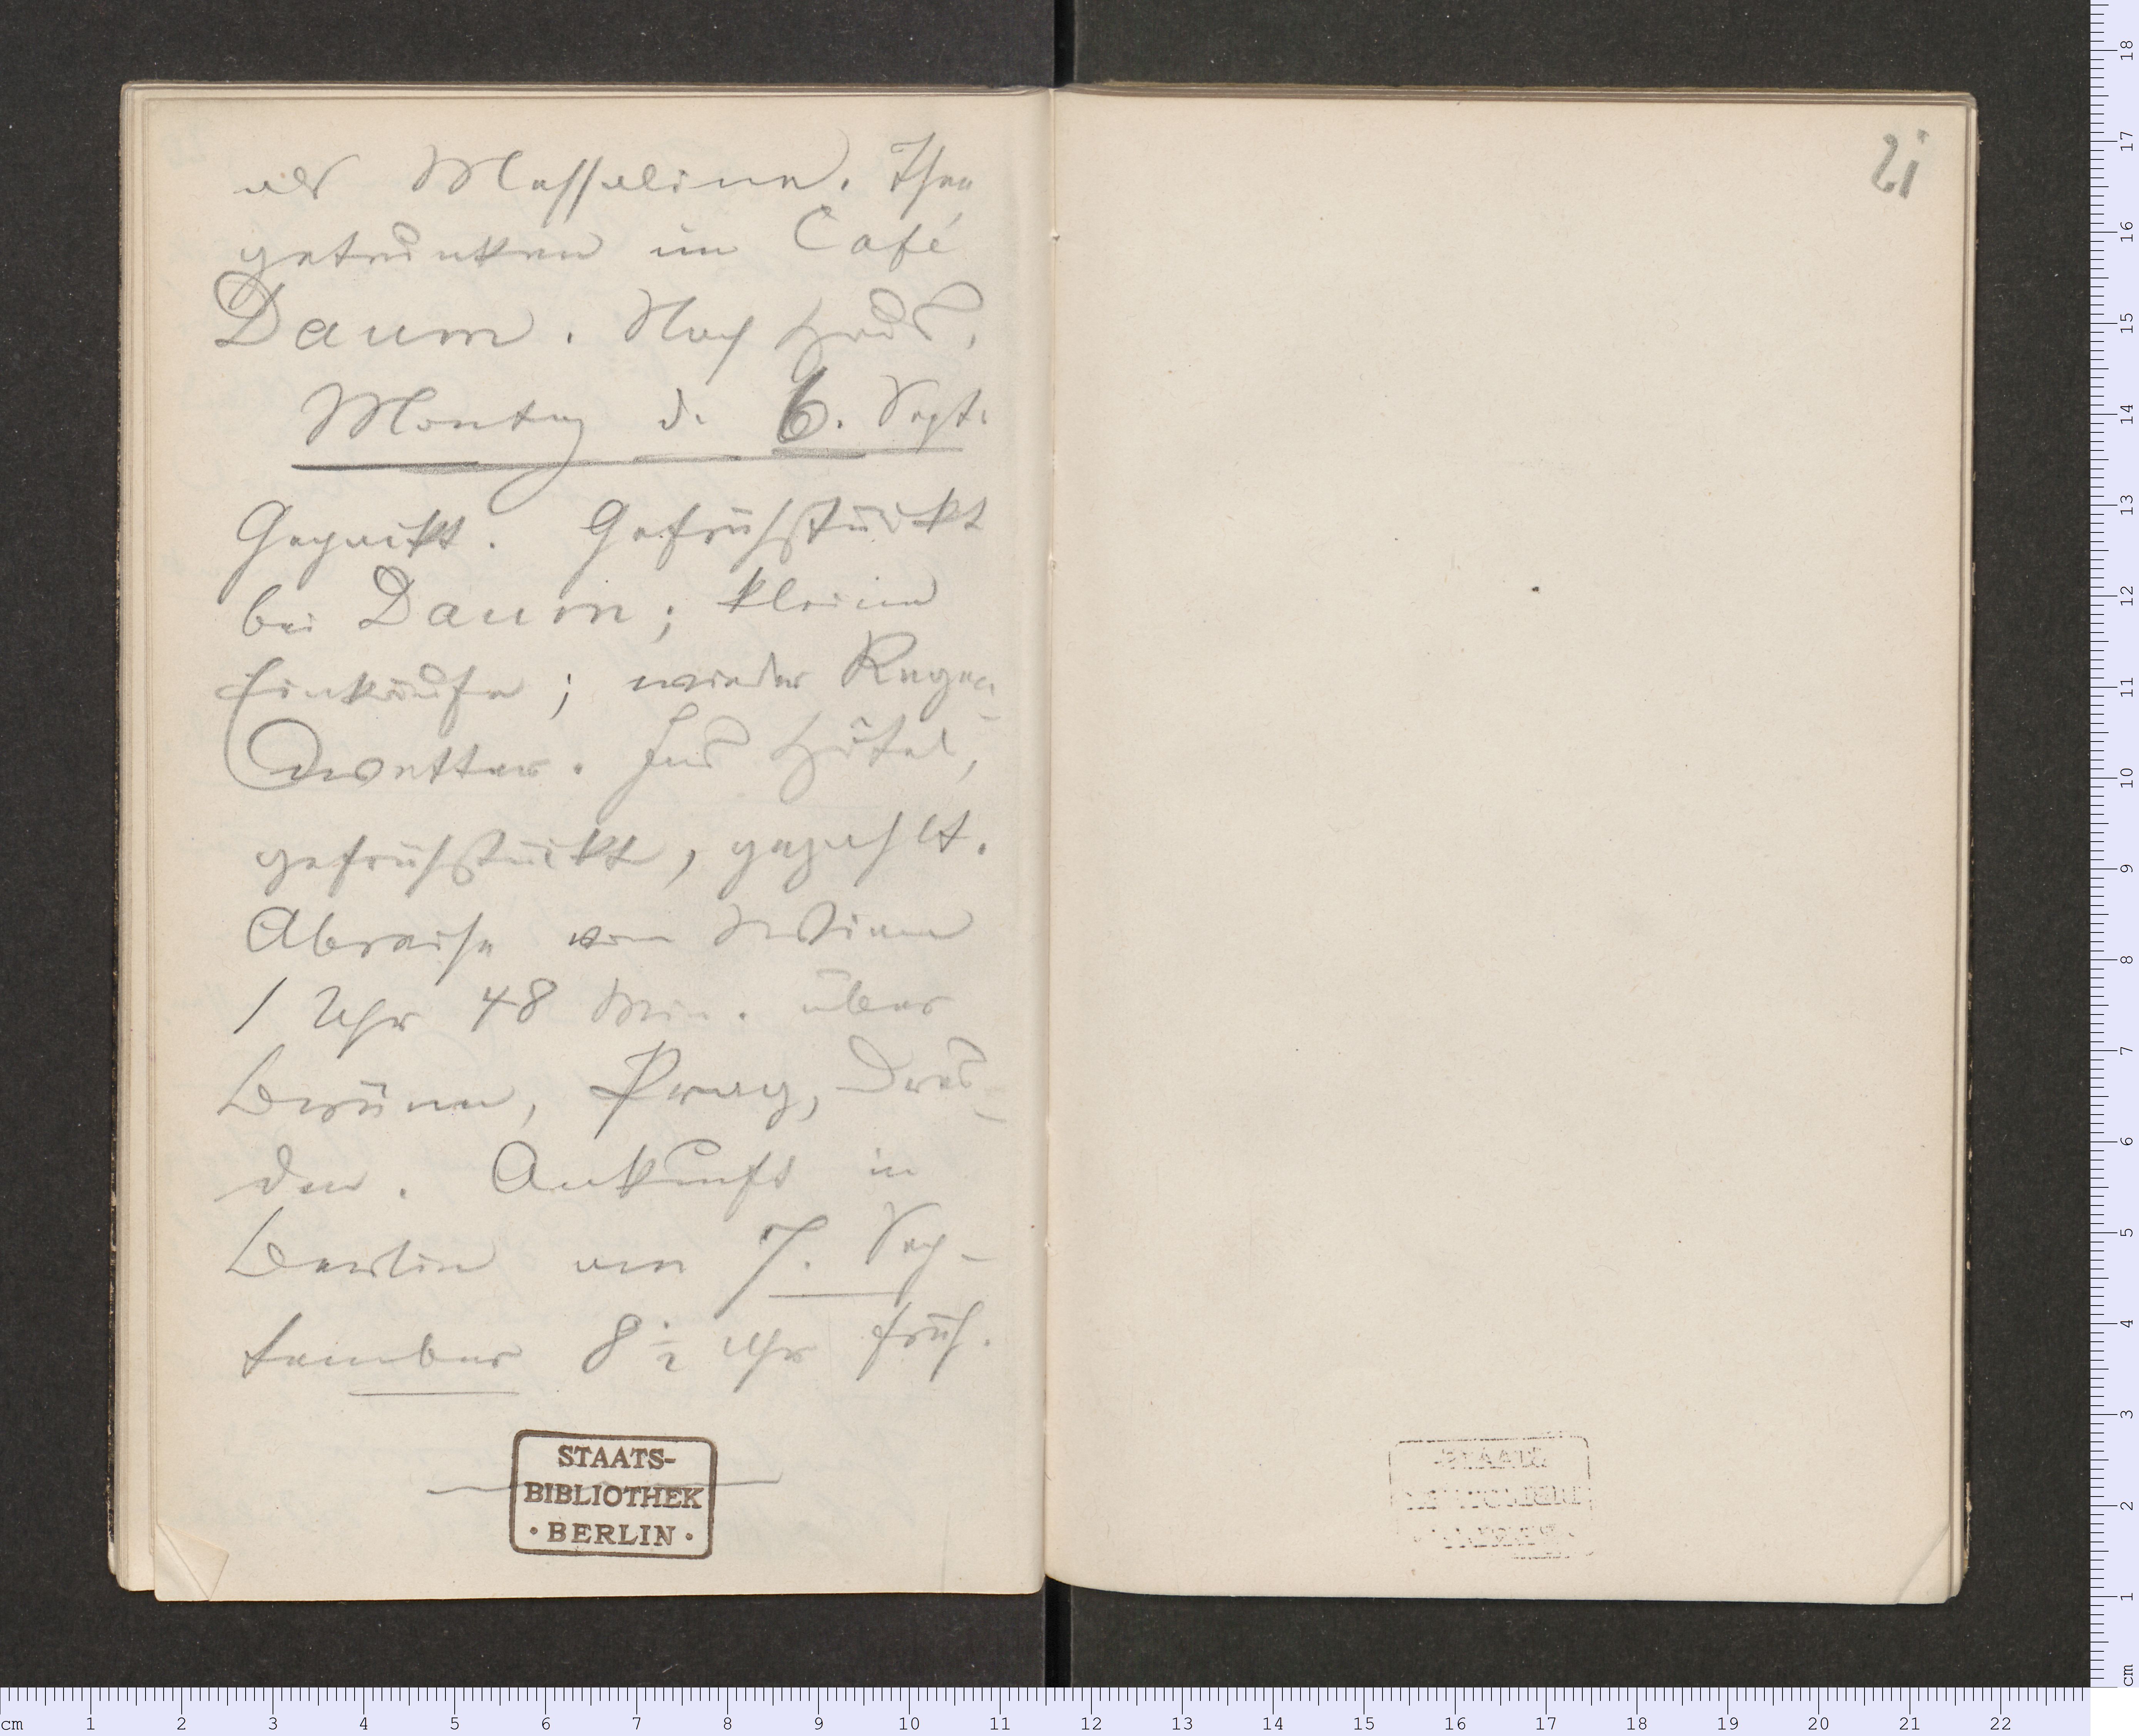 als Messaline. Thee
getrunken im Café
Daum. Nach Haus.
Montag d. 6. Sept.
Gepackt. Gefrühstückt
bei Daum; kleine
Einkäufe; wieder Regen-
wetter. Ins Hôtel,
gefrühstückt, gezahlt.
Abreise von Wien
1 Uhr 48 Min. über
Brünn, Prag, Dres-
den. Ankunft in
Berlin am 7. Sep-
tember 8 ½ Uhr früh.
STAATS-
BIBLIOTHEK
• BERLIN •
21